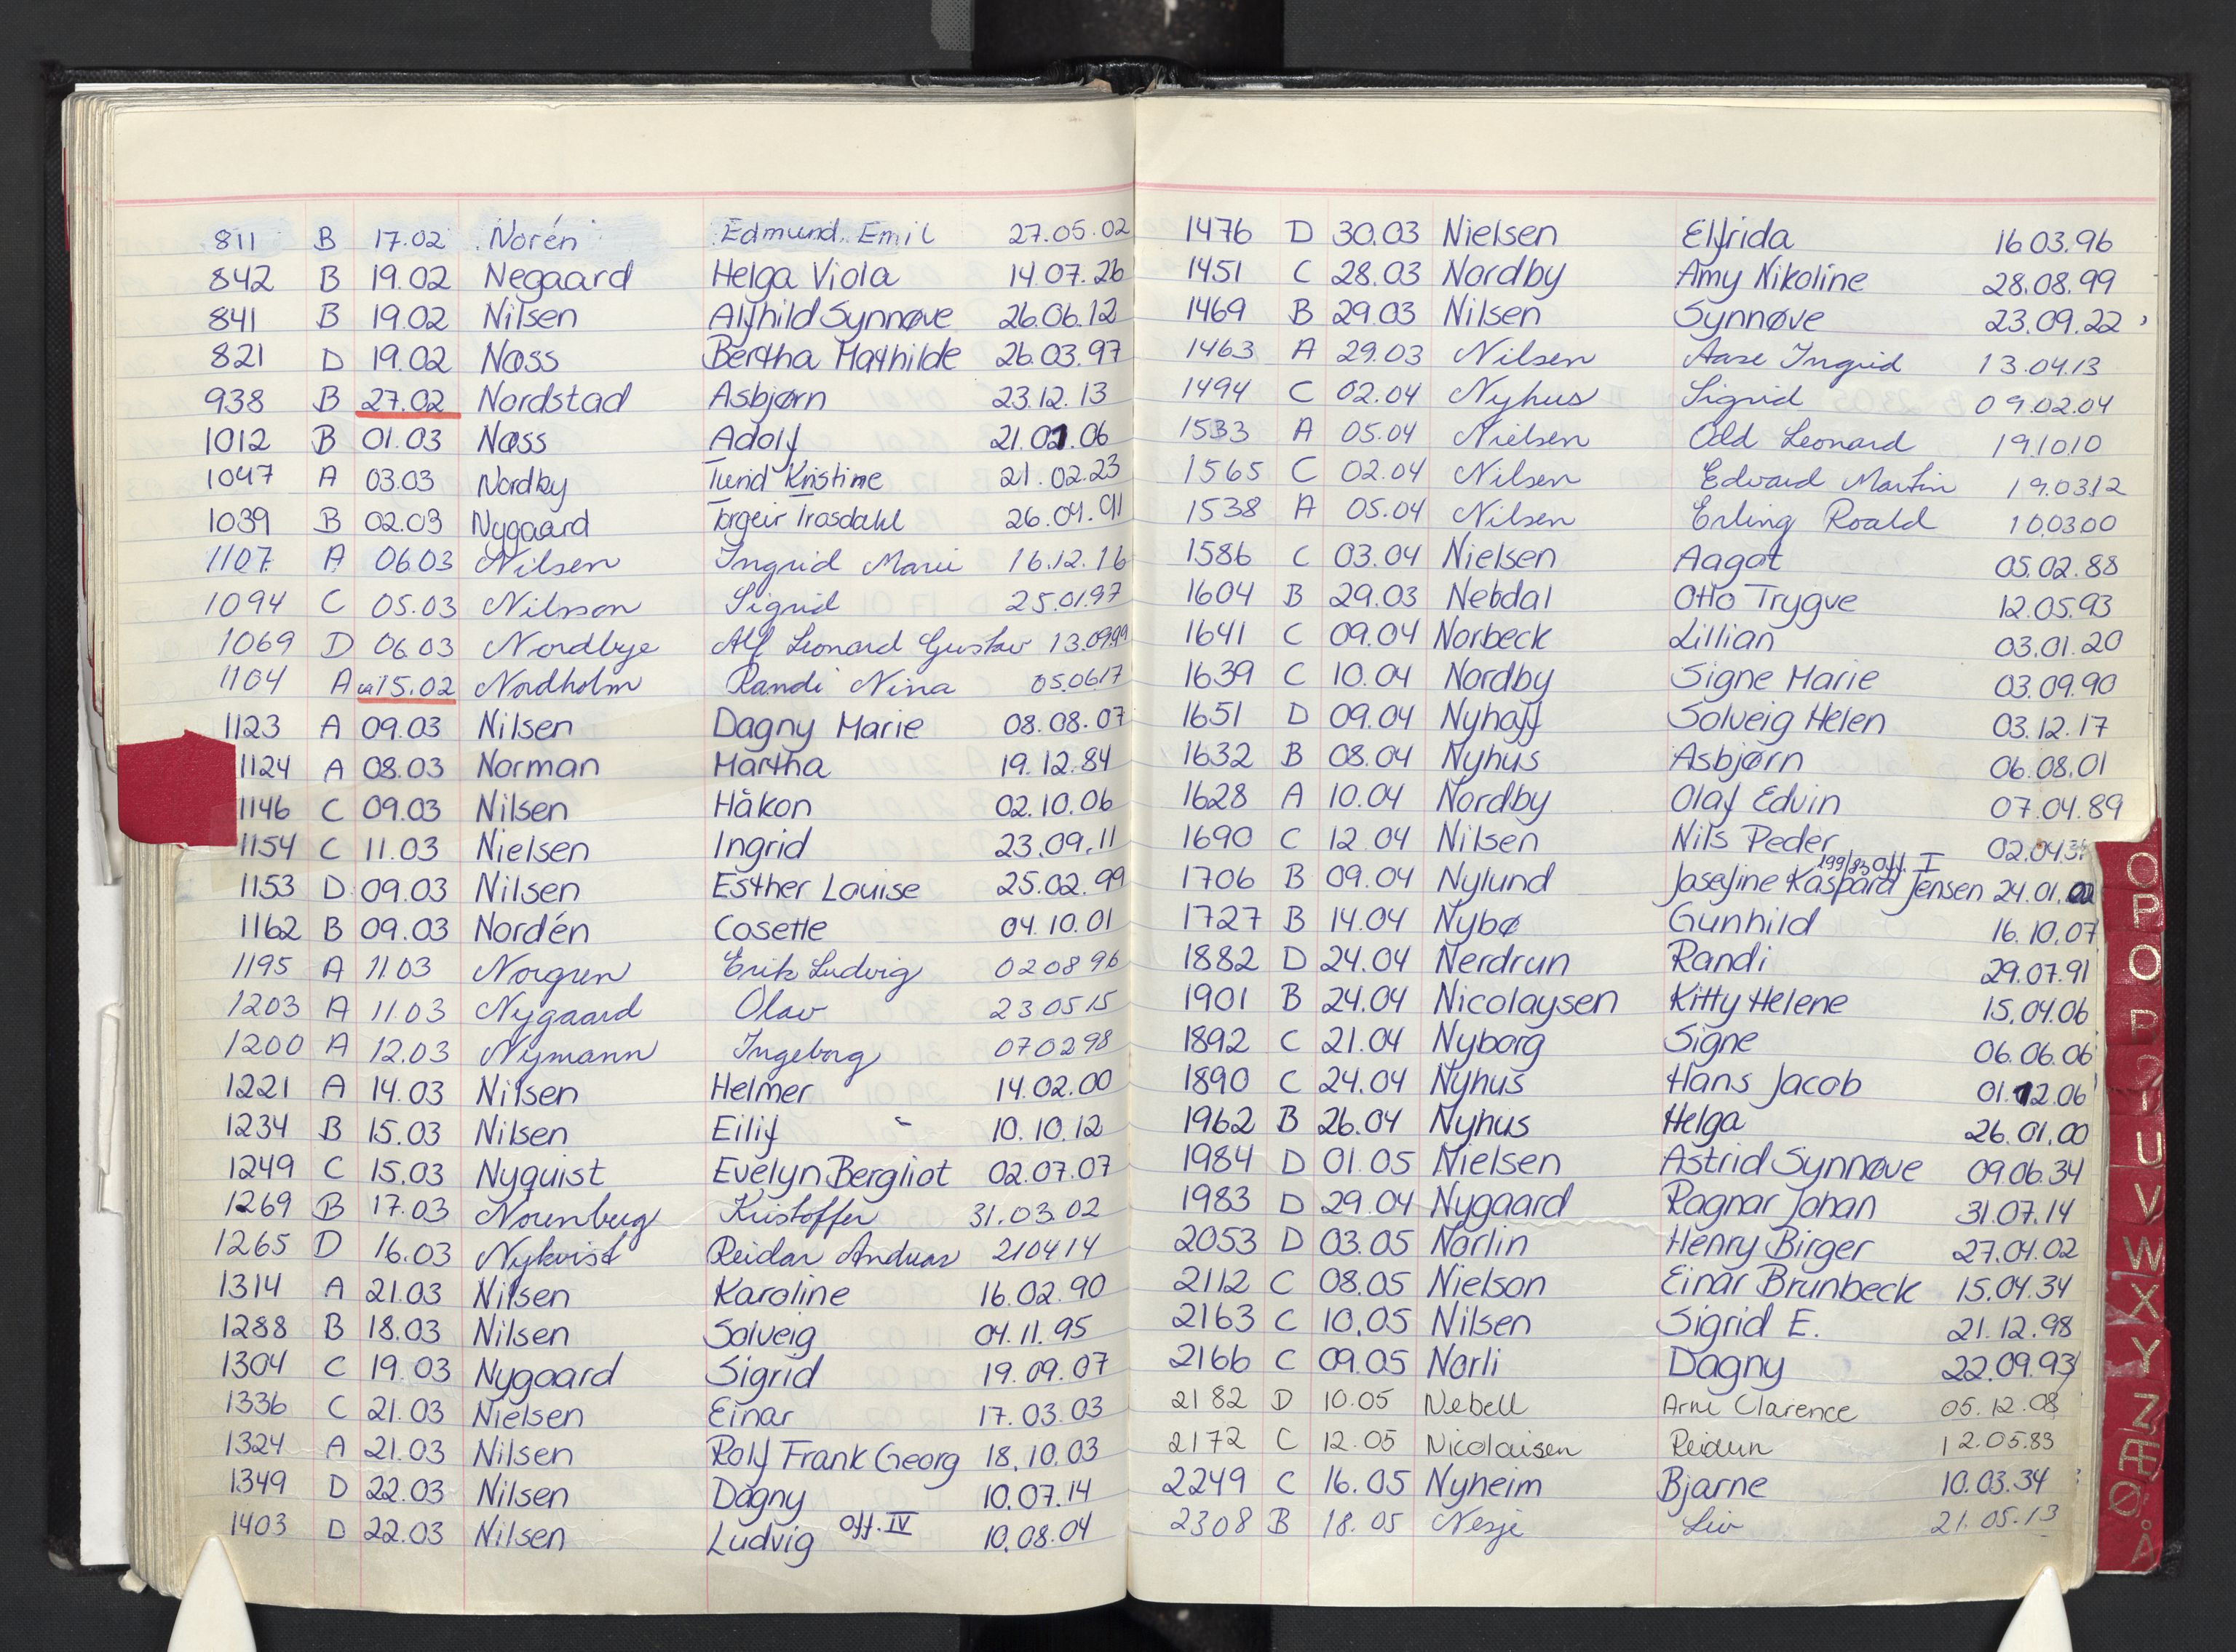 811 B 17.02 Norén Edmund Emil 27.05.02
842 B 19.02 Negaard Helga Viola 14.07.26
841 B 19.02 Nilsen Alfhild Synnøve 26.06.12
821 D 19.02 Næss Bertha Mathilde 26.03.97
938 B 27.02 Nordstad Asbjørn 23.12.13
1012 B 01.03 Næss Adolf 21.01.06
1047 A 03.03 Nordby Turid Kristine 21.02.23
1039 B 02.03 Nygaard Torgeir Trosdahl 26.04.91
1107 A 06.03 Nilsen Ingrid Marie 16.12.16
1094 C 05.03 Nilsson Sigrid 25.01.97
1069 D 06.03 Nordbye Alf Leonard Gustav 13.09.99
1104 A ca 15.02 Nordholm Randi Nina 05.06.17
1123 A 09.03 Nilsen Dagny Marie 08.08.07
1124 A 08.03 Norman Martha 19.12.84
1146 C 09.03 Nilsen Håkon 02.10.06
1154 C 11.03 Nielsen Ingrid 23.09.11
1153 D 09.03 Nilsen Esther Louise 25.02.99
1162 B 09.03 Nordén Cosette 04.10.01
1195 A 11.03 Norgren Erik Ludvig 020896
1203 A 11.03 Nygaard Olav 230515
1200 A 12.03 Nymann Ingeborg 070298
1221 A 14.03 Nilsen Helmer 14.02.00
1234 B 15.03 Nilsen Eilif 10.10.12
1249 C 15.03 Nyquist Evelyn Bergliot 02.07.07
1269 B 17.03 Norenberg Kristoffer 31.03.02
1265 D 16.03 Nykvist Reidar Andreas 210414
1314 A 21.03 Nilsen Karoline 16.02.90
1288 B 18.03 Nilsen Solveig 04.11.95
1304 C 19.03 Nygaard Sigrid 19.09.07
1336 C 21.03 Nielsen Einar 17.03.03
1324 A 21.03 Nilsen Rolf Frank Georg 18.10.03
1349 D 22.03 Nilsen Dagny 10.07.14
1403 D 22.03 Nilsen Ludvig Off. IV 10.08.04
1476 D 30.03 Nielsen Elfrida 16 03.96
1451 C 28.03 Nordby Amy Nikoline 28.08.99
1469 B 29.03 Nilsen Synnøve 23.09.22
1463 A 29.03 Nilsen Aase Ingrid 13.04.13
1494 C 02.04 Nyhus Sigrid 09.02.04
1533 A 05.04 Nielsen Odd Leonard 191010
1565 C 02.04 Nilsen Edvard Martin 19.0312
1538 A 05.04 Nilsen Erling Roald 100300
1586 C 03.04 Nielsen Aagot 05.02.88
1604 B 29.03 Nebdal Otto Trygve 12.05.93
1641 C 09.04 Norbeck Lillian 03.01.20
1639 C 10.04 Nordby Signe Marie 03.09.90
1651 D 09.04 Nyhoff Solveig Helen 03.12.17
1632 B 08.04 Nyhus Asbjørn 06.08.01
1628 A 10.04 Nordby Olaf Edvin 07.04.89
1690 C 12.04 Nilsen Nils Peder 02.04
199/83 Off. I
1706 B 09.04 Nylund Josefine Kaspara Jensen 24.01.02
1727 B 14.04 Nybø Gunhild 16.10.07
1882 D 24.04 Nerdrun Randi 29.07.91
1901 B 24.04 Nicolaysen Kitty Helene 15.04.06
1892 C 21.04 Nyborg Signe 06.06.06
1890 C 24.04 Nyhus Hans Jacob 01.12.06
1962 B 26.04 Nyhus Helga 26.01.00
1984 D 01.05 Nielsen Astrid Synnøve 09.06.34
1983 D 29.04 Nygaard Ragnar Johan 31.07.14
2053 D 03.05 Norlin Henry Birger 27.04.02
2112 C 08.05 Nielson Einar Brunbeck 15.04.34
2163 C 10.05 Nilsen Sigrid E. 21.12.98
2166 C 09.05 Norli Dagny 22.09.93
2182 D 10.05 Nebell Arne Clarence 05.12.08
2172 C 12.05 Nicolaisen Reidun 12.05.83
2249 C 16.05 Nyheim Bjarne 10.03.34
2308 B 18.05 Nesje Liv 21.05.13
O
P
O
P
U
V
W
X
Y
Z
Æ
Ø
Å